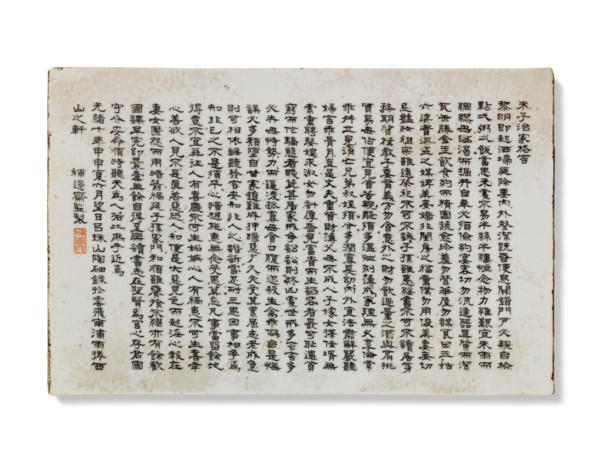 朱子治家格言
黎明即起洒埽庭除要內外整潔既昏便息關鎖門戶必親自檢
點一粥一飯當思來處不易半絲半縷恆念物力維艱宜未雨而
綢繆毋臨渴而掘井自奉必須儉約宴客切勿流連器具質而潔
瓦缶勝金玉飲食約而精園蔬愈珍羞勿營華屋勿謀良田三姑
六婆實淫盜之媒婢美妾嬌非閨房之福童僕勿用俊美妻妾切
忌豔妝祖宗雖遠祭祀不可不誠子孫雖愚經書不可不讀居身
務期質樸教子要有義方勿貪意外之財勿飲過量之酒與肩挑
貿易毋佔便宜見貧苦親鄰須多溫恤刻薄成家理無久享倫常
乖舛立見消亡兄弟叔姪須分多潤寡長幼內外宜法肅辭嚴聽
婦言乖骨肉豈是丈夫重貲財薄父母不成人子嫁女擇佳壻無
索重聘娶媳求淑女勿計厚奩見富貴而生諂容者最可恥遇貧
窮而作驕態者賤莫甚居家戒爭訟訟則終凶處世戒多言言多
必失毋恃勢力而凌逼孤寡毋貪口腹而恣殺生禽乖僻自是悔
誤必多頹墮自甘家道難成狎暱惡少久必受其累屈志老成急
則可相依輕聽發言安知非人之譖訴當忍耐三思因事相爭焉
知非己之不是須平心暗想施惠無念受恩莫忘凡事當留餘地
得意不宜再往人有喜慶不可生妒嫉心人有禍患不可生喜幸
心善欲人見不是真善惡恐人知便是大惡見色而起淫心報在
妻女匿怨而用暗箭禍延子孫家門和順雖饔飧不繼亦有餘歡
國課早完即囊橐無餘自得至樂讀書志在聖賢為官心存君國
守分安命順時聽天為人若此庶乎近焉
光緒十年甲申夏六月望日呂珠山陶錄於雲飛南浦雨捲西
山之軒 補過齋監製